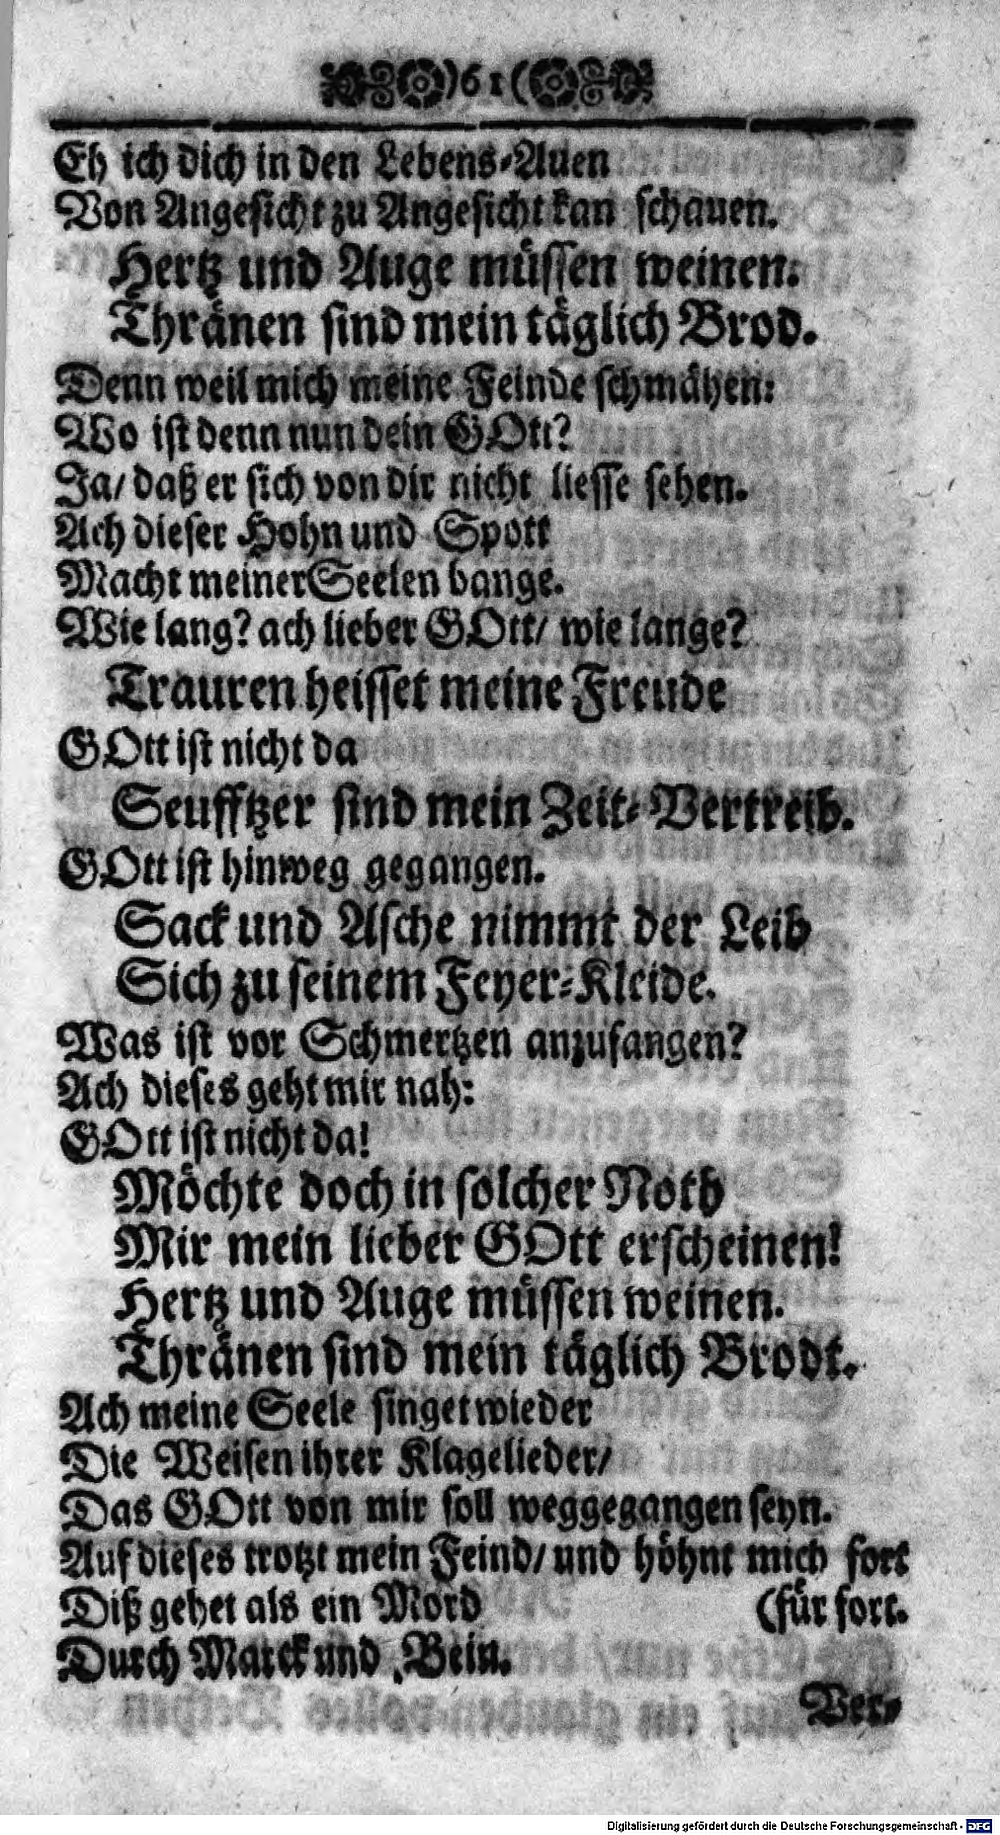 )61(
Eh ich dich in den Lebens-Auen
Von Angesicht zu Angesicht kan schauen.
Hertz und Auge müssen weinen:
Thränen sind mein täglich Brod.
Denn weil mich meine Feinde schmähen:
Wo ist denn nun dein GOtt?
Ja/ daß er sich von dir nicht liesse sehen.
Ach dieser Hohn und Spott
Macht meiner Seelen bange.
Wie lang? ach lieber GOtt/ wie lange?
Trauren heisset meine Freude
GOtt ist nicht da
Seufftzer sind mein Zeit-Vertreib.
GOtt ist hinweg gegangen.
Sack und Asche nimmt der Leib
Sich zu seinem Feyer-Kleide.
Was ist vor Schmertzen anzufangen?
Ach dieses geht mir nah:
GOtt ist nicht da!
Möchte doch in solcher Noth
Mir mein lieber GOtt erscheinen!
Hertz und Auge müssen weinen.
Thränen sind mein täglich Brodt.
Ach meine Seele singet wieder
Die Weisen ihrer Klagelieder/
Das GOtt von mir soll weggegangen seyn.
Auf dieses trotzt mein Feind/ und höhnt mich fort
Diß gehet als ein Mord (für fort.
Durch Marck und Bein.
Ver-
Digitalisierung gefördert durch die Deutsche Forschungsgemeinschaft - DFG